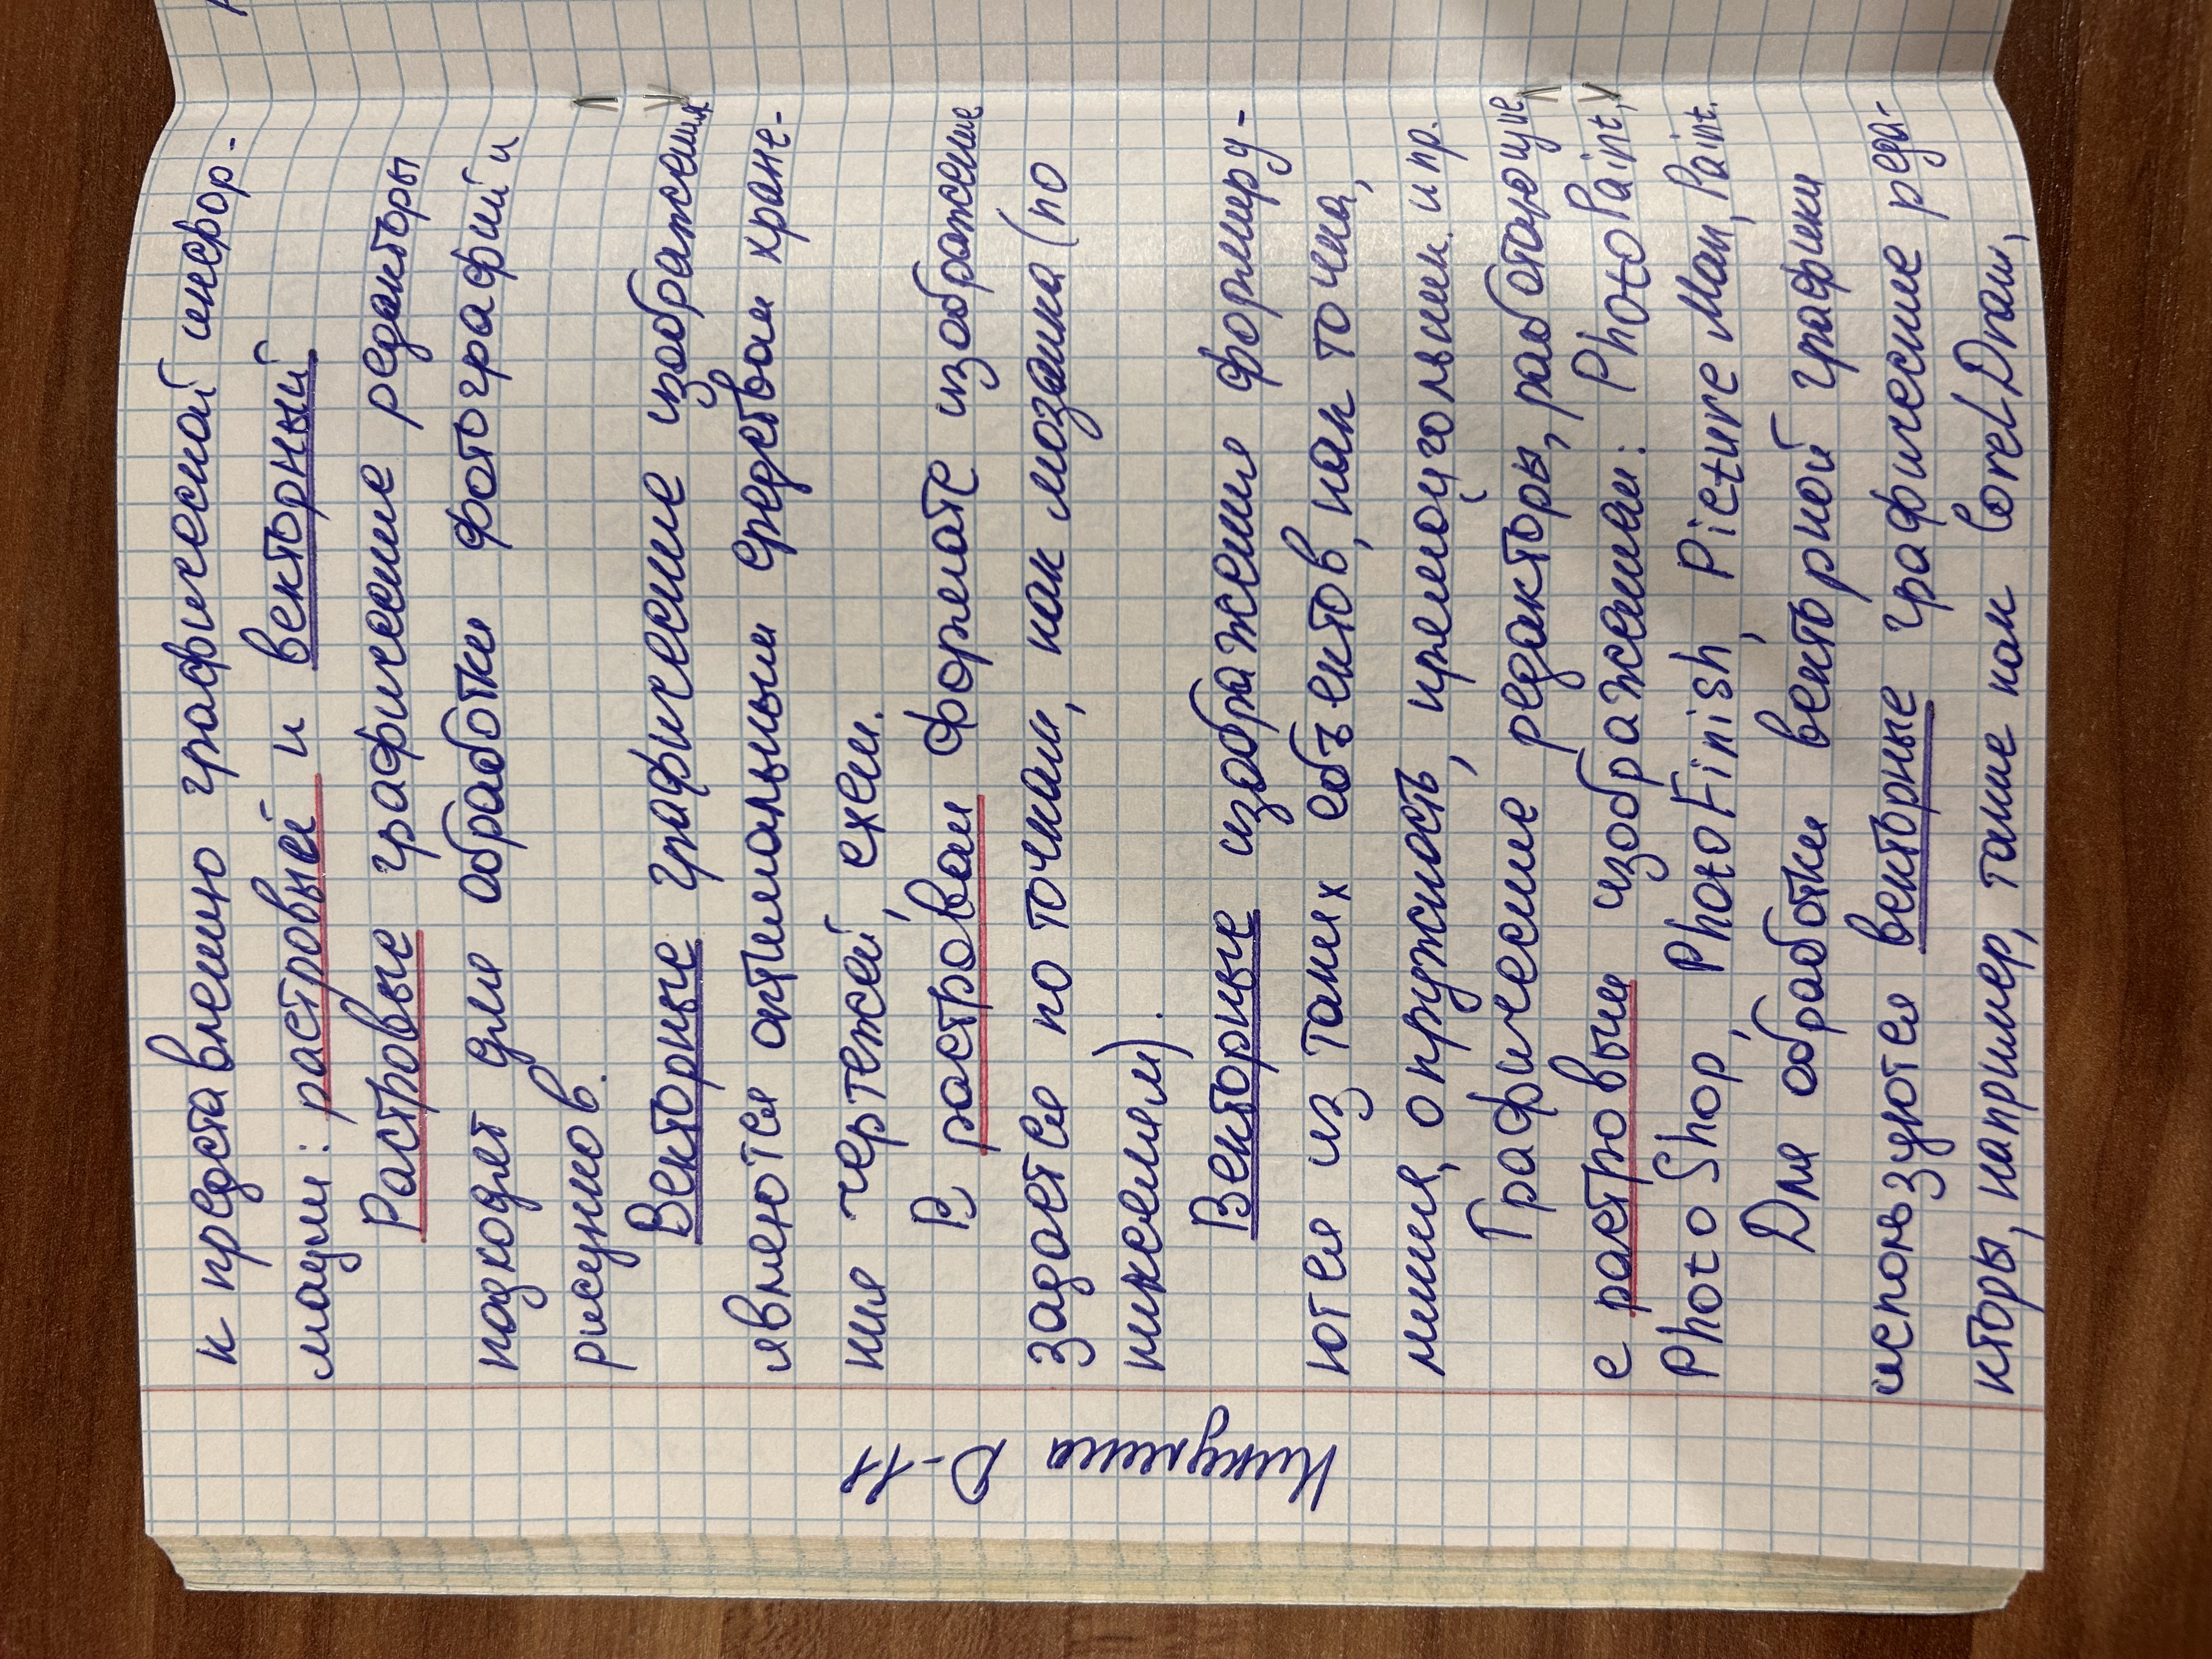 к представлению графической инфор-
мации: растровый и векторный
Растровые графические редакторы
подходят для обработки фотографий и
рисунков.
Векторные графические изображения
являются оптимальным средством хране-
ния чертежей, схем.
В растровом формате изображение
задается по точкам, как мозаика (по
пикселям).
Векторные изображения формиру-
ются из таких объектов, как точка,
линия, окружность, прямоугольник и пр.
Графические редакторы, работающие
с растровым изображением: PhotoPaint,
PhotoShop, PhotoFinish, Picture Man, Paint.
Для обработки векторной графики
используются векторные графические реда-
кторы, например, такие как CorelDraw,